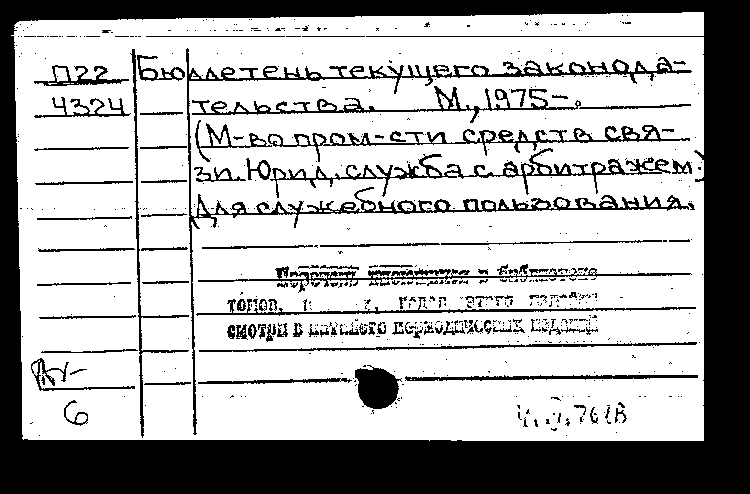 П22 Бюллетень текущего законода-
4324 тельства. М., 1975-.
(М-во пром-сти средств свя-
зи. Юрид. служба с арбитражем.)
Для служебного пользования.
Перечень имеющихся в библиотеке
томов, годов этого издания
смотри в каталоге периодических изданий
6